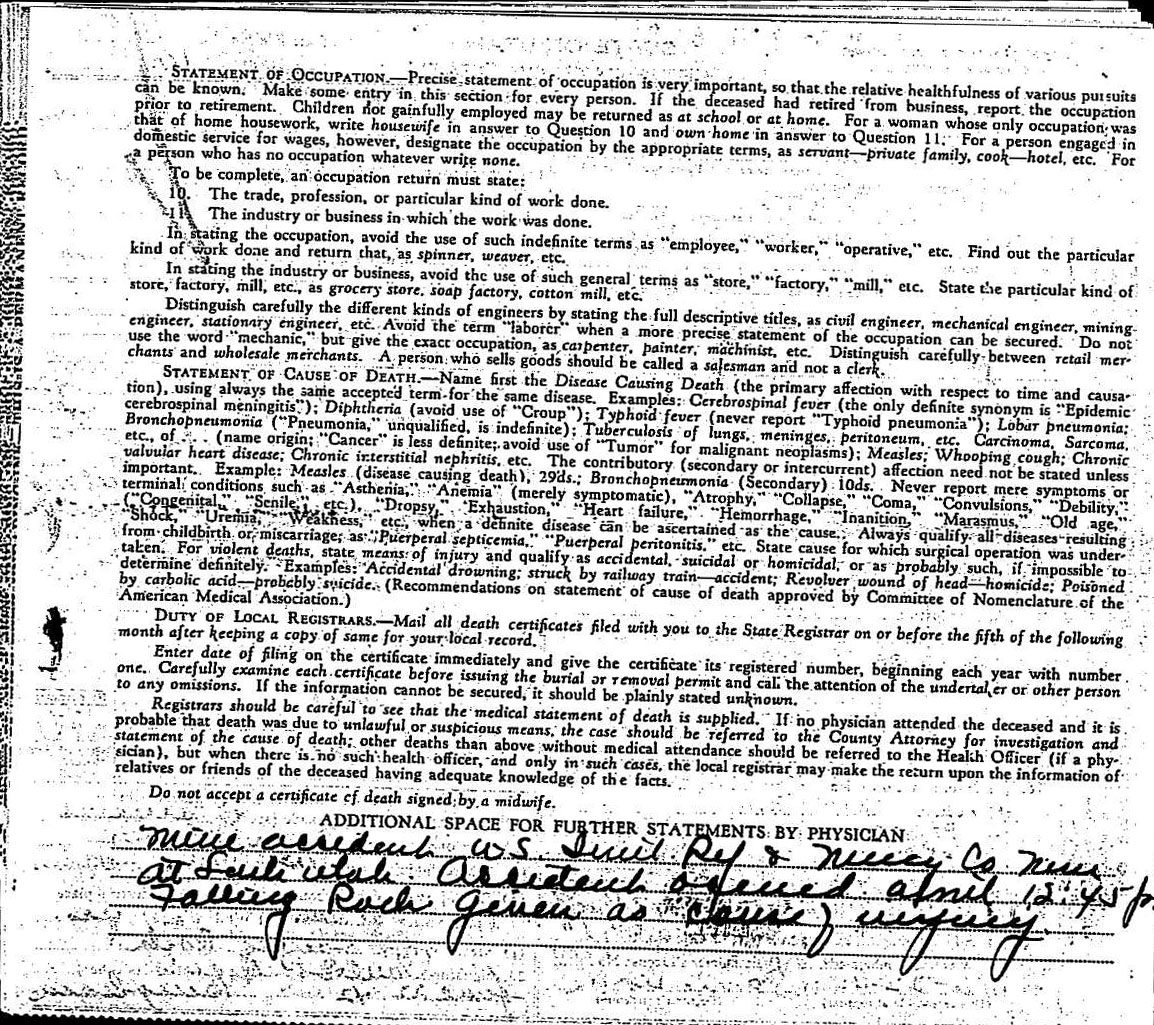 STATEMENT OF OCCUPATION.—Precise statement of occupation is very important, so that the relative healthfulness of various pursuits
can be known. Make some entry in this section for every person. If the deceased had retired from business, report the occupation
prior to retirement. Children not gainfully employed may be returned as at school or at home. For a woman whose only occupation was
that of home housework, write housewife in answer to Question 10 and own home in answer to Question 11. For a person engaged in
domestic service for wages, however, designate the occupation by the appropriate terms, as servant—private family, cook—hotel, etc. For
a person who has no occupation whatever write none.
To be complete, an occupation return must state:
10. The trade, profession, or particular kind of work done.
11. The industry or business in which the work was done.
In stating the occupation, avoid the use of such indefinite terms as "employee," "worker," "operative," etc. Find out the particular
kind of work done and return that, as spinner, weaver, etc.
In stating the industry or business, avoid the use of such general terms as "store," "factory," "mill," etc. State the particular kind of
store, factory, mill, etc., as grocery store, soap factory, cotton mill, etc.
Distinguish carefully the different kinds of engineers by stating the full descriptive titles, as civil engineer, mechanical engineer, mining
engineer, stationary engineer, etc. Avoid the term "laborer" when a more precise statement of the occupation can be secured. Do not
use the word "mechanic," but give the exact occupation, as carpenter, painter, machinist, etc. Distinguish carefully between retail mer-
chants and wholesale merchants. A person who sells goods should be called a salesman and not a clerk.
STATEMENT OF CAUSE OF DEATH.—Name first the Disease Causing Death (the primary affection with respect to time and causa-
tion), using always the same accepted term for the same disease. Examples: Cerebrospinal fever (the only definite synonym is "Epidemic
cerebrospinal meningitis"); Diphtheria (avoid use of "Croup"); Typhoid fever (never report "Typhoid pneumonia"); Lobar pneumonia;
Bronchopneumonia ("Pneumonia," unqualified, is indefinite); Tuberculosis of lungs, meninges, peritoneum, etc. Carcinoma, Sarcoma,
etc., of . . (name origin; "Cancer" is less definite; avoid use of "Tumor" for malignant neoplasms); Measles; Whooping cough; Chronic
valvular heart disease; Chronic interstitial nephritis, etc. The contributory (secondary or intercurrent) affection need not be stated unless
important. Example: Measles (disease causing death), 29ds.; Bronchopneumonia (Secondary) 10ds. Never report mere symptoms or
terminal conditions such as "Asthenia," "Anemia" (merely symptomatic), "Atrophy," "Collapse," "Coma," "Convulsions," "Debility,"
("Congenital," "Senile," etc.), "Dropsy," "Exhaustion," "Heart failure," "Hemorrhage," "Inanition," "Marasmus," "Old age,"
"Shock," "Uremia," "Weakness," etc., when a definite disease can be ascertained as the cause. Always qualify all diseases resulting
from childbirth or miscarriage; as "Puerperal septicemia," "Puerperal peritonitis," etc. State cause for which surgical operation was under-
taken. For violent deaths, state means of injury and qualify as accidental, suicidal or homicidal, or as probably such, if impossible to
determine definitely. Examples: Accidental drowning; struck by railway train—accident; Revolver wound of head—homicide; Poisoned
by carbolic acid—probably suicide. (Recommendations on statement of cause of death approved by Committee of Nomenclature of the
American Medical Association.)
DUTY OF LOCAL REGISTRARS.—Mail all death certificates filed with you to the State Registrar on or before the fifth of the following
month after keeping a copy of same for your local record.
Enter date of filing on the certificate immediately and give the certificate its registered number, beginning each year with number
one. Carefully examine each certificate before issuing the burial or removal permit and call the attention of the undertaker or other person
to any omissions. If the information cannot be secured, it should be plainly stated unknown.
Registrars should be careful to see that the medical statement of death is supplied. If no physician attended the deceased and it is
probable that death was due to unlawful or suspicious means, the case should be referred to the County Attorney for investigation and
statement of the cause of death; other deaths than above without medical attendance should be referred to the Health Officer (if a phy-
sician), but when there is no such health officer, and only in such cases, the local registrar may make the return upon the information of
relatives or friends of the deceased having adequate knowledge of the facts.
Do not accept a certificate of death signed by a midwife.
ADDITIONAL SPACE FOR FURTHER STATEMENTS BY PHYSICIAN
Mine accident U.S. Ref & Co Mine
at Utah. Accident April 12:45 p.
Falling Rock given as cause of